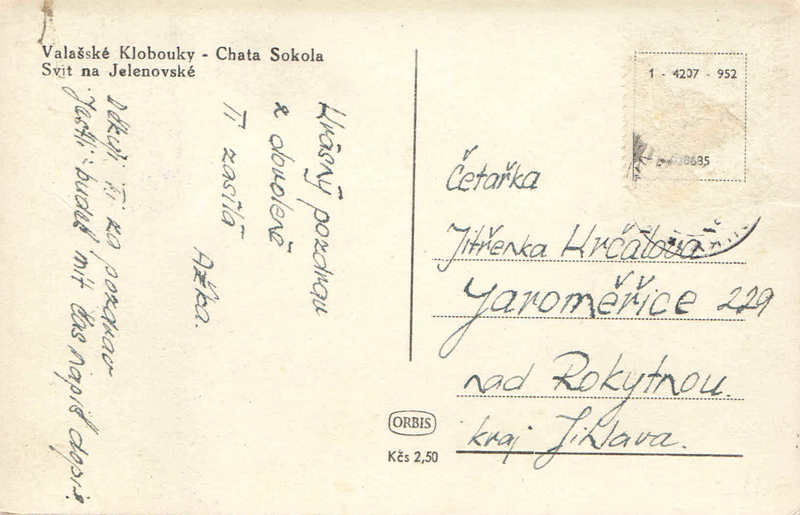 Valašské Klobouky - Chata Sokola
Svit na Jelenovské
Krásný pozdrav
z dovolené
Ti zasílá
Ažka.
Děkuji Ti za pozdrav
Jestli budeš mít čas napiš dopis.
1 - 4207 - 952
Četařka
Jitřenka Krčálová
Jaroměřice 229
nad Rokytnou.
kraj Jihlava.
ORBIS
Kčs 2,50